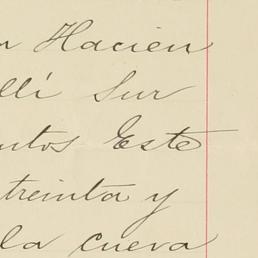 n Hacien
llí Sur
ntos Este
treinta y
la cueva